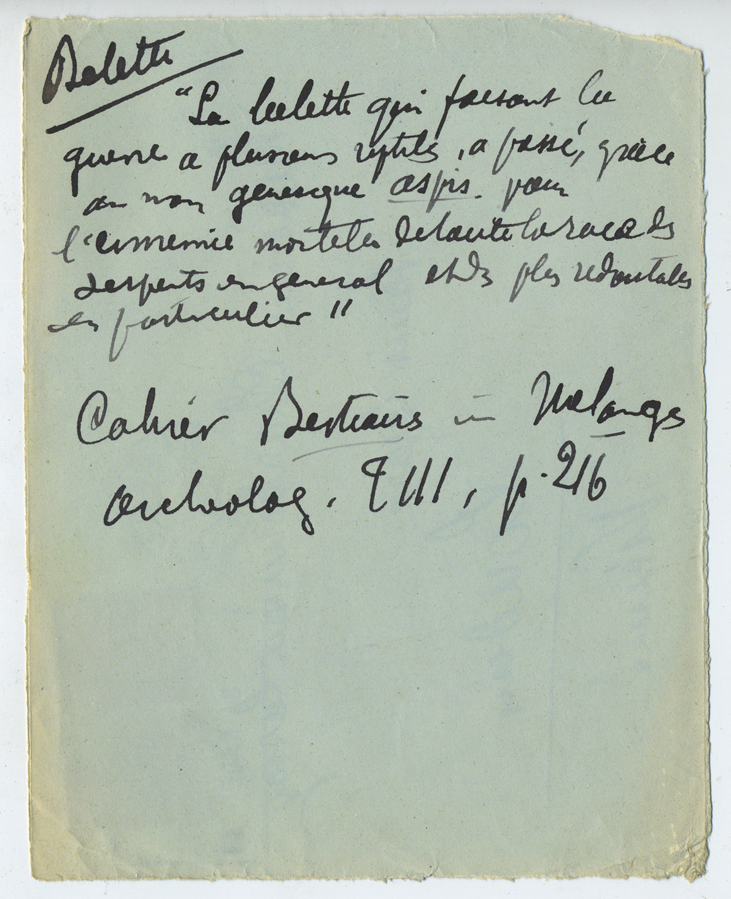 Belette
"La belette qui faisant la
guerre a plusieurs reptiles, a passé, grâce
au nom generique aspis. pour
l'ennemie mortelle de toute la race des
serpents en general et des plus redoutables
en particulier"
Cahier Bestiaires in Melanges
archeolog. T III, p. 216